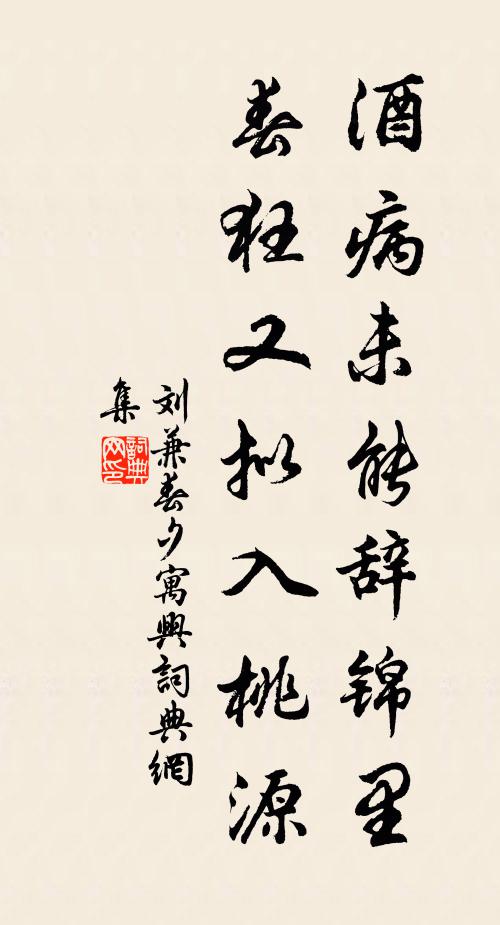 酒病未能辞锦里
春狂又拟入桃源
刘兼春夕寓興詞典網
集
詞典
网印